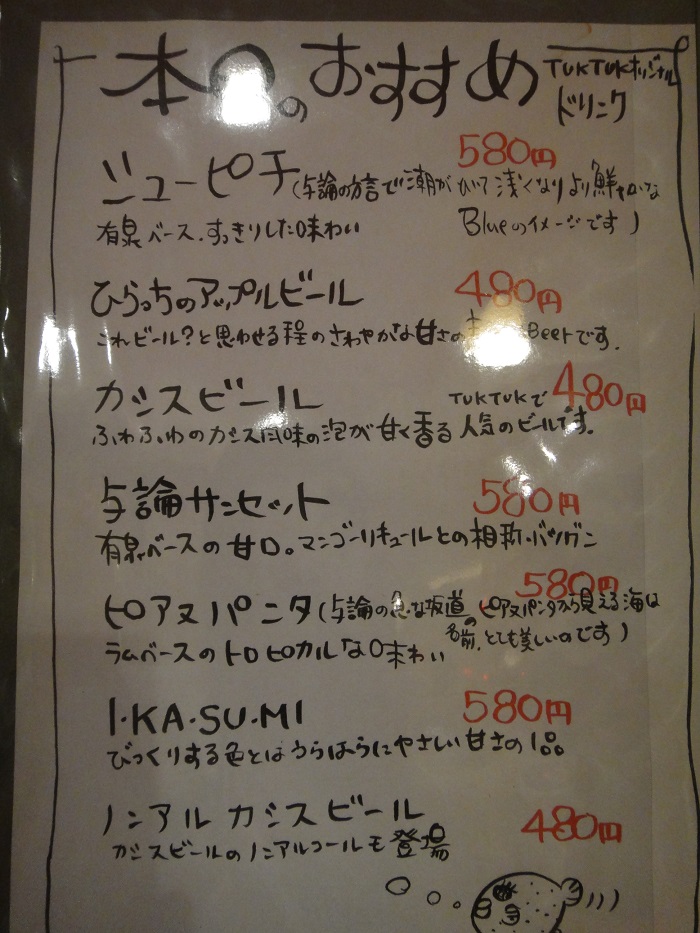 本日のおすすめ TUKTUKオリジナル
ドリンク
580円
ジューピチ(与論の方言で潮がひいて浅くなりより鮮やかな
有泉ベース.すっきりした口味わい Blueのイメージです)
ひらっちのアップルビール 480円
これビール?と思わせる程のさわやかな甘さの Beerです.
カシスビール TUKTUKで 480円
ふわふわのカシス風味の泡が甘く香る 人気のビールです.
与論サンセット 580円
有泉ベースの甘口。マンゴーリキュールとの相称.バツグン
580円
ピアヌパニタ(与論の急な坂道の名前.ピアヌパンタから見える海は
とても美しいのです)
ラムベースのトロピカルな口味わい
I・KA・SU・MI 580円
びっくりする色とはうらはらにやさしい甘さの1品
ノンアルカシスビール 480円
カシスビールのノンアルコールモ登場